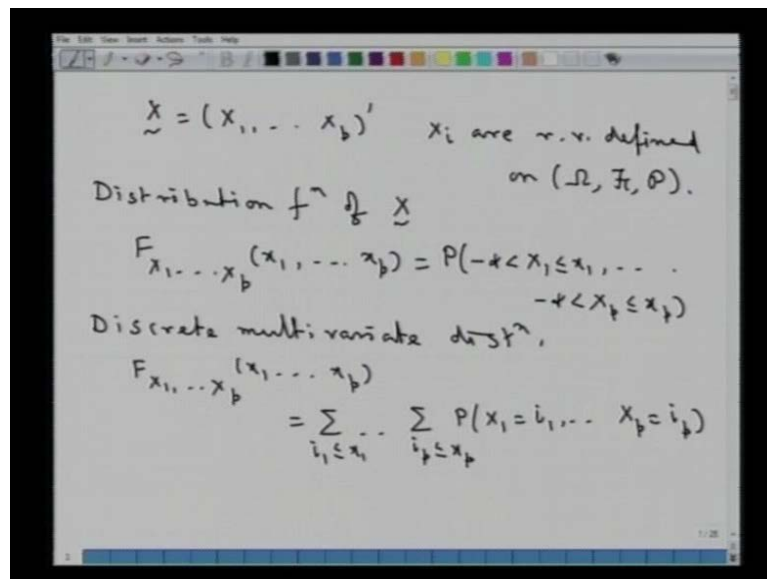 File Edit View Insert Actions Tools Help
X = (X₁, ... X_p)' X_i are r.v. defined
on (Ω, ℱ, P).
Distribution fⁿ of X
F_{X₁...X_p}(x₁, ... x_p) = P(-∞ < X₁ ≤ x₁, ... .
-∞ < X_p ≤ x_p)
Discrete multivariate distⁿ.
F_{X₁,...X_p}(x₁ ... x_p)
= Σ_{i₁≤x₁} .. Σ_{i_p≤x_p} P(X₁ = i₁, .. X_p = i_p)